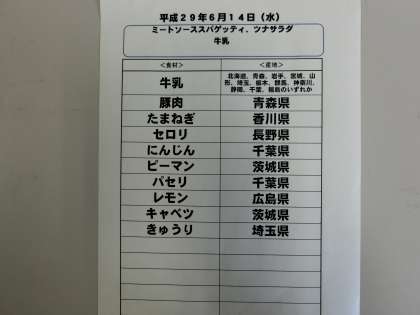 平成29年6月14日（水）
ミートソーススパゲッティ、ツナサラダ
牛乳
＜食材＞ ＜産地＞
牛乳 北海道、青森、岩手、宮城、山形、埼玉、栃木、群馬、神奈川、静岡、千葉、福島のいずれか
豚肉 青森県
たまねぎ 香川県
セロリ 長野県
にんじん 千葉県
ピーマン 茨城県
パセリ 千葉県
レモン 広島県
キャベツ 茨城県
きゅうり 埼玉県